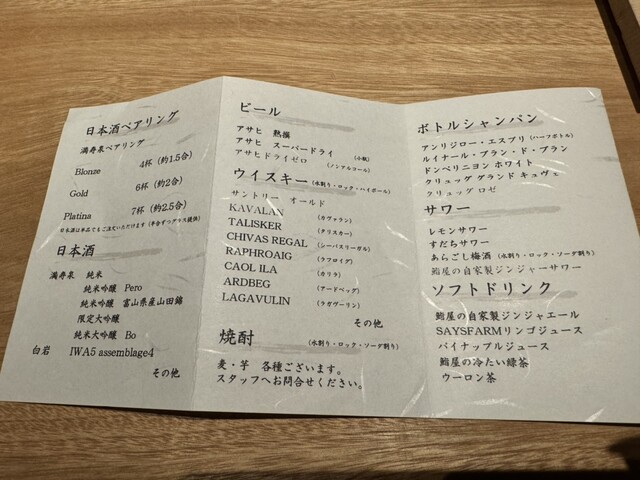 日本酒ペアリング
満寿泉ペアリング
Blonze 4杯 (約1.5合)
Gold 6杯 (約2合)
Platina 7杯 (約2.5合)
日本酒は単品でもご注文いただけます (半合ずつグラス提供)
日本酒
満寿泉 純米
純米吟醸 Pero
純米吟醸 富山県産山田錦
限定大吟醸
純米大吟醸 Bo
白岩 IWA5 assemblage4
その他
ビール
アサヒ 熟撰
アサヒ スーパードライ (小瓶)
アサヒドライゼロ (ノンアルコール)
ウイスキー (水割り・ロック・ハイボール)
サントリー オールド
KAVALAN (カヴァラン)
TALISKER (タリスカー)
CHIVAS REGAL (シーバスリーガル)
RAPHROAIG (ラフロイグ)
CAOL ILA (カリラ)
ARDBEG (アードベッグ)
LAGAVULIN (ラガヴーリン)
その他
焼酎 (水割り・ロック・ソーダ割り)
麦・芋 各種ございます。
スタッフへお問合せください。
ボトルシャンパン
アンリジロー・エスプリ (ハーフボトル)
ルイナール・ブラン・ド・ブラン
ドンペリニヨン ホワイト
クリュッグ グランド キュヴェ
クリュッグ ロゼ
サワー
レモンサワー
すだちサワー
あらごし梅酒 (水割り・ロック・ソーダ割り)
鮨屋の自家製ジンジャーサワー
ソフトドリンク
鮨屋の自家製ジンジャエール
SAYSFARMリンゴジュース
パイナップルジュース
鮨屋の冷たい緑茶
ウーロン茶